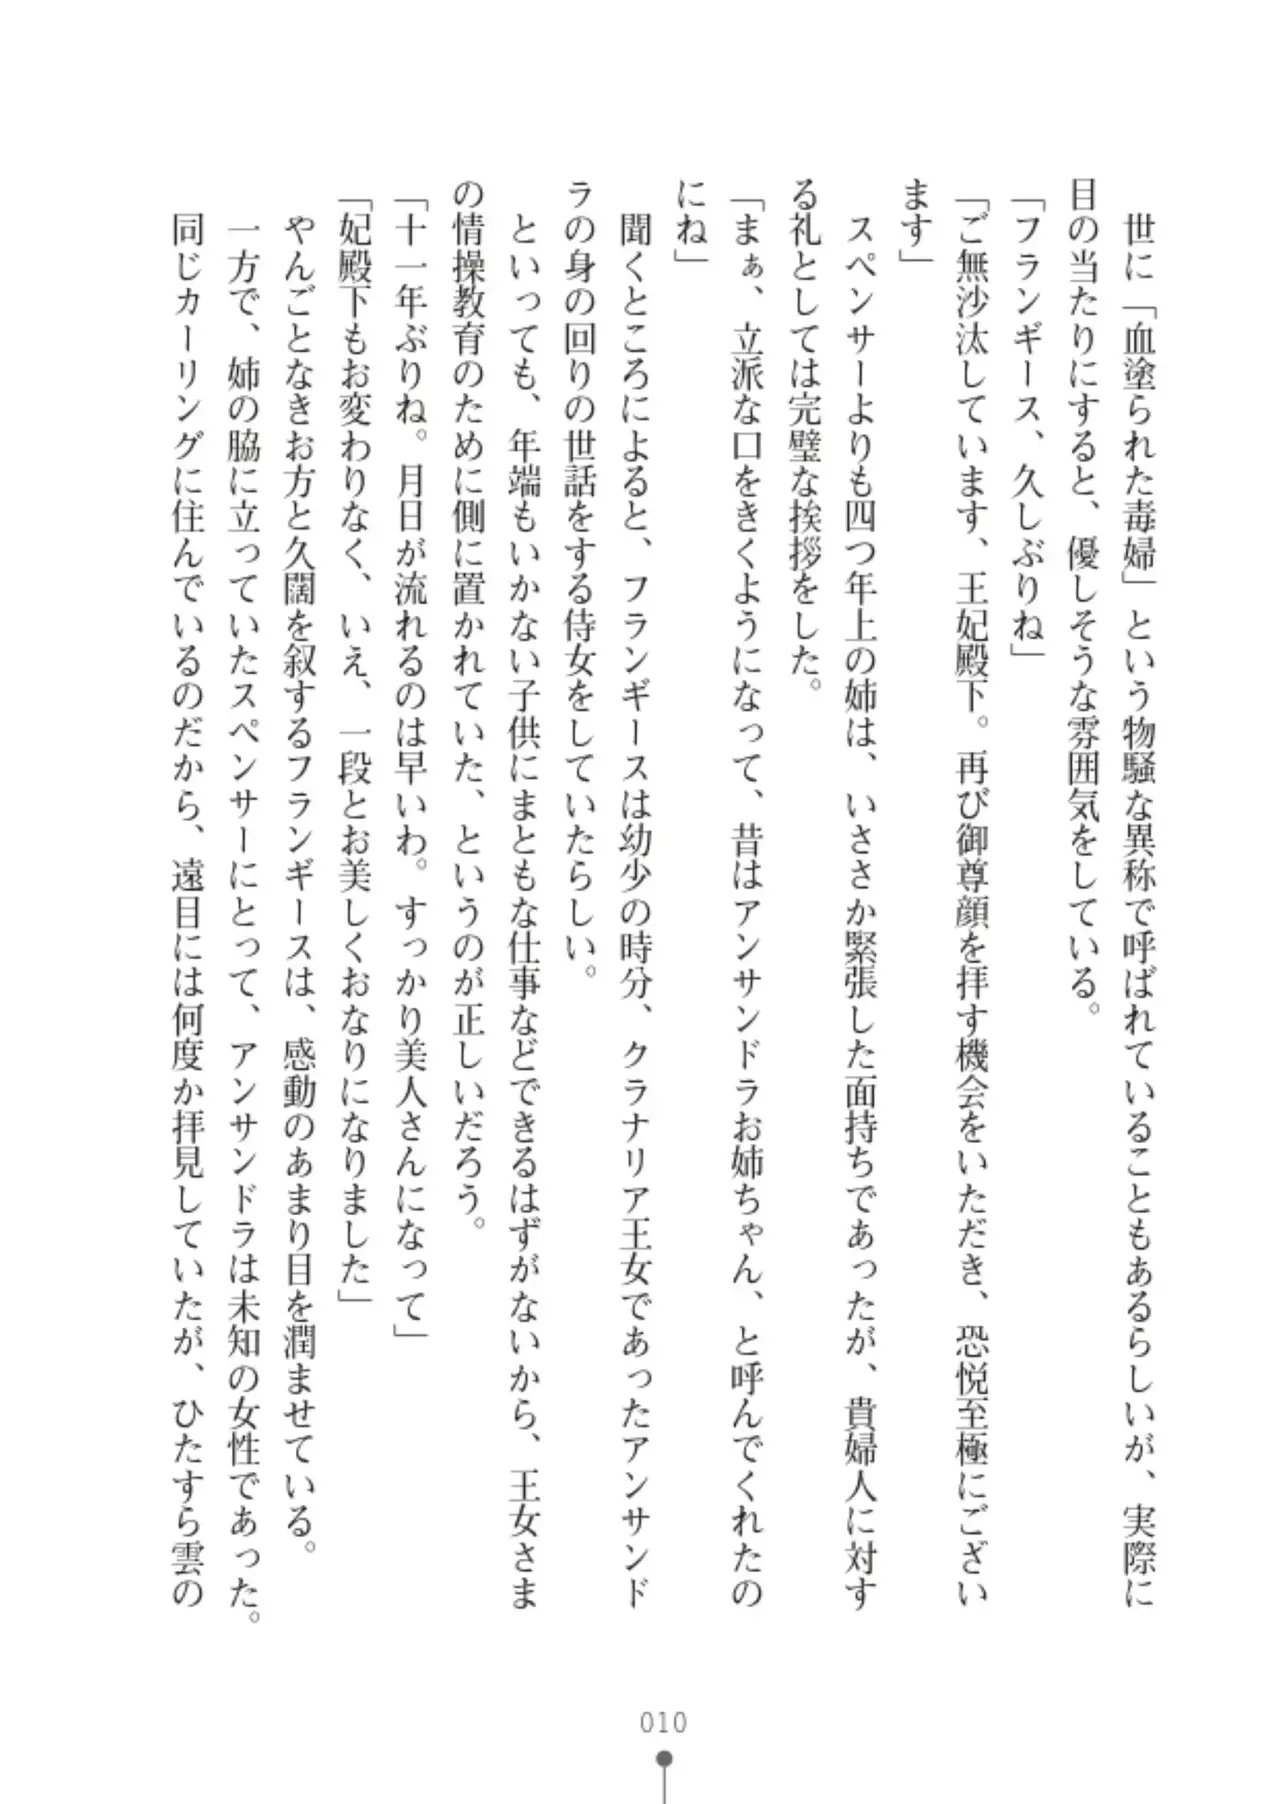 世に「血塗られた毒婦」という物騒な異称で呼ばれていることもあるらしいが、実際に
目の当たりにすると、優しそうな雰囲気をしている。
「フランギース、久しぶりね」
「ご無沙汰しています、王妃殿下。再び御尊顔を拝す機会をいただき、恐悦至極にござい
ます」
スペンサーよりも四つ年上の姉は、いささか緊張した面持ちであったが、貴婦人に対す
る礼としては完璧な挨拶をした。
「まぁ、立派な口をきくようになって、昔はアンサンドラお姉ちゃん、と呼んでくれたの
にね」
聞くところによると、フランギースは幼少の時分、クラナリア王女であったアンサンド
ラの身の回りの世話をする侍女をしていたらしい。
といっても、年端もいかない子供にまともな仕事などできるはずがないから、王女さま
の情操教育のために側に置かれていた、というのが正しいだろう。
「十一年ぶりね。月日が流れるのは早いわ。すっかり美人さんになって」
「妃殿下もお変わりなく、いえ、一段とお美しくおなりになりました」
やんごとなきお方と久闊を叙するフランギースは、感動のあまり目を潤ませている。
一方で、姉の脇に立っていたスペンサーにとって、アンサンドラは未知の女性であった。
同じカーリングに住んでいるのだから、遠目には何度か拝見していたが、ひたすら雲の
010